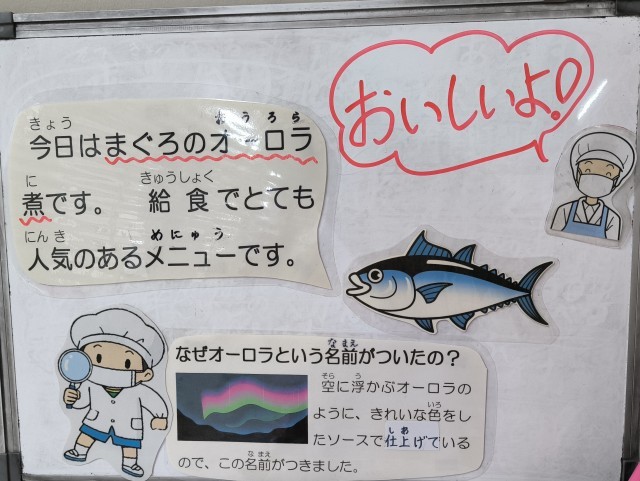 おいしいよ!
きょう おうろら
今日はまぐろのオーロラ
に きゅうしょく
煮です。 給食でとても
にんき めにゅう
人気のあるメニューです。
なまえ
なぜオーロラという名前がついたの？
そら う
空に浮かぶオーロラの
いろ
ように、きれいな色をし
しあ
たソースで仕上げている
なまえ
ので、この名前がつきました。